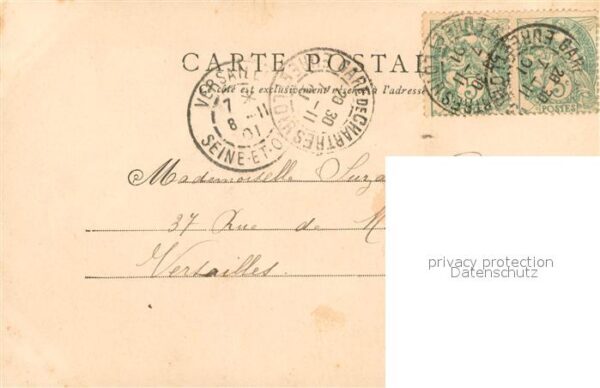 CARTE POSTAL
Ce côté est exclusivement réservé à l'adresse
VERSAILLES
7
8 -11
01
SEINE-ET-O
GARE DE CHARTRES
20 30
11
EURE
GARE
5
5
POSTES
Mademoiselle Suza
37 Rue de M
Versailles.
privacy protection
Datenschutz